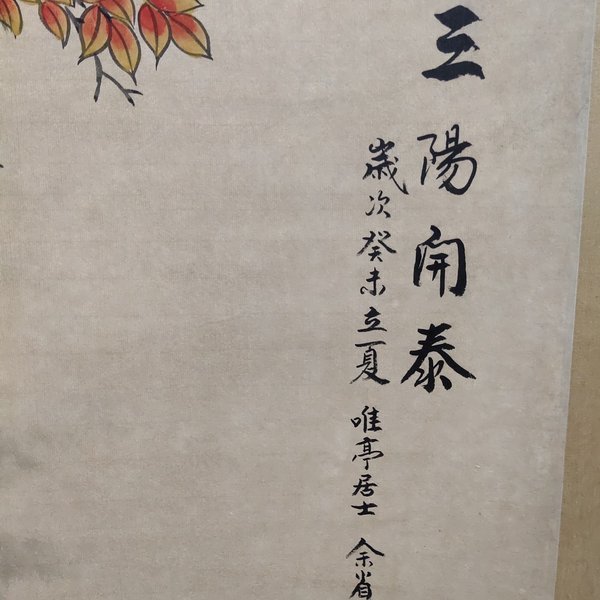 三陽開泰
歲次癸未立夏 唯亭居士 余省